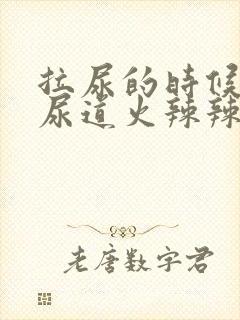 拉尿的時候
尿道火辣辣
老唐數字君